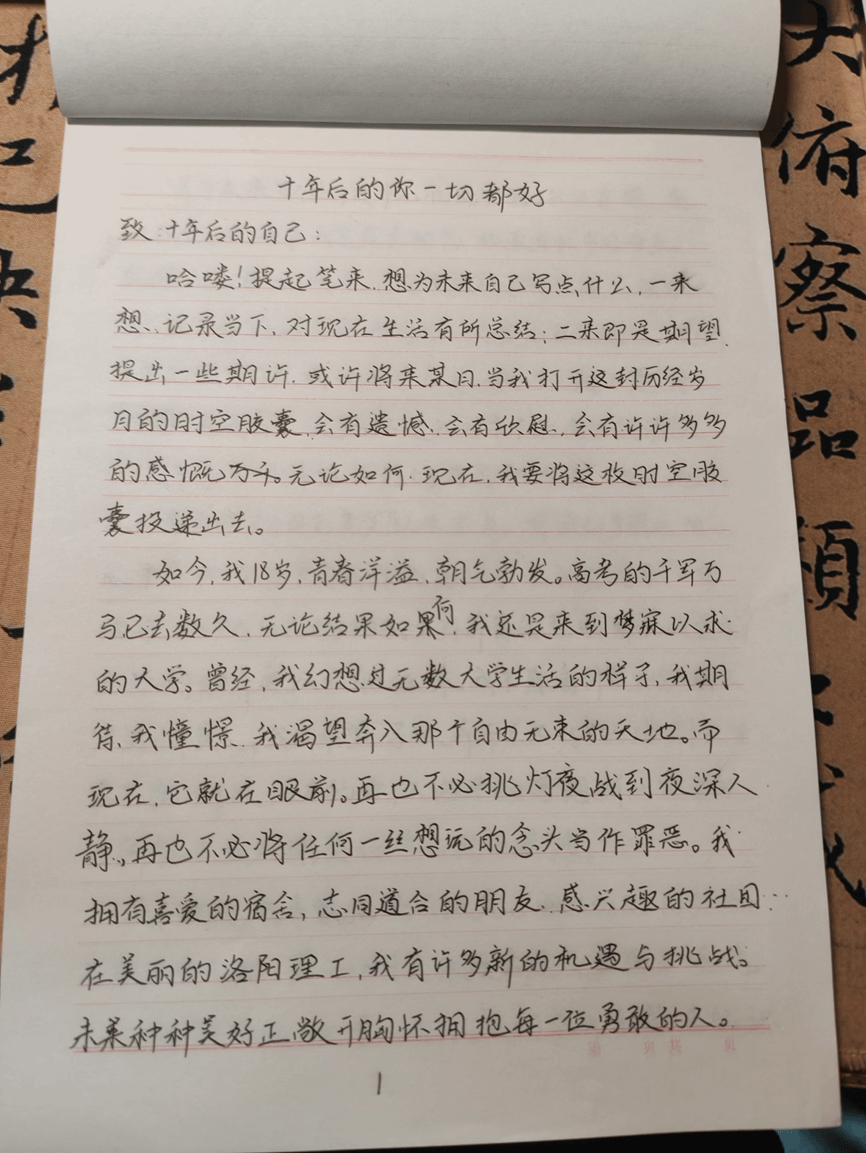 十年后的你一切都好
致十年后的自己：
哈喽！提起笔来，想为未来自己写点什么，一来
想、记录当下，对现在生活有所总结；二来即是期望，
提出一些期许，或许将来某日，当我打开这封历经岁
月的时空胶囊，会有遗憾，会有欣慰，会有许许多多
的感慨万千。无论如何，现在，我要将这枚时空胶
囊投递出去。
如今，我18岁，青春洋溢，朝气勃发。高考的千军万
马已去数久，无论结果如果何，我还是来到梦寐以求
的大学。曾经，我幻想过无数大学生活的样子，我期
待，我憧憬，我渴望奔入那个自由无束的天地。而
现在，它就在眼前。再也不必挑灯夜战到夜深人
静，再也不必将任何一丝想玩的念头当作罪恶。我
拥有喜爱的宿舍，志同道合的朋友，感兴趣的社团…
在美丽的洛阳理工，我有许多新的机遇与挑战。
未来种种美好正敞开胸怀拥抱每一位勇敢的人。
1
大俯察品類
己